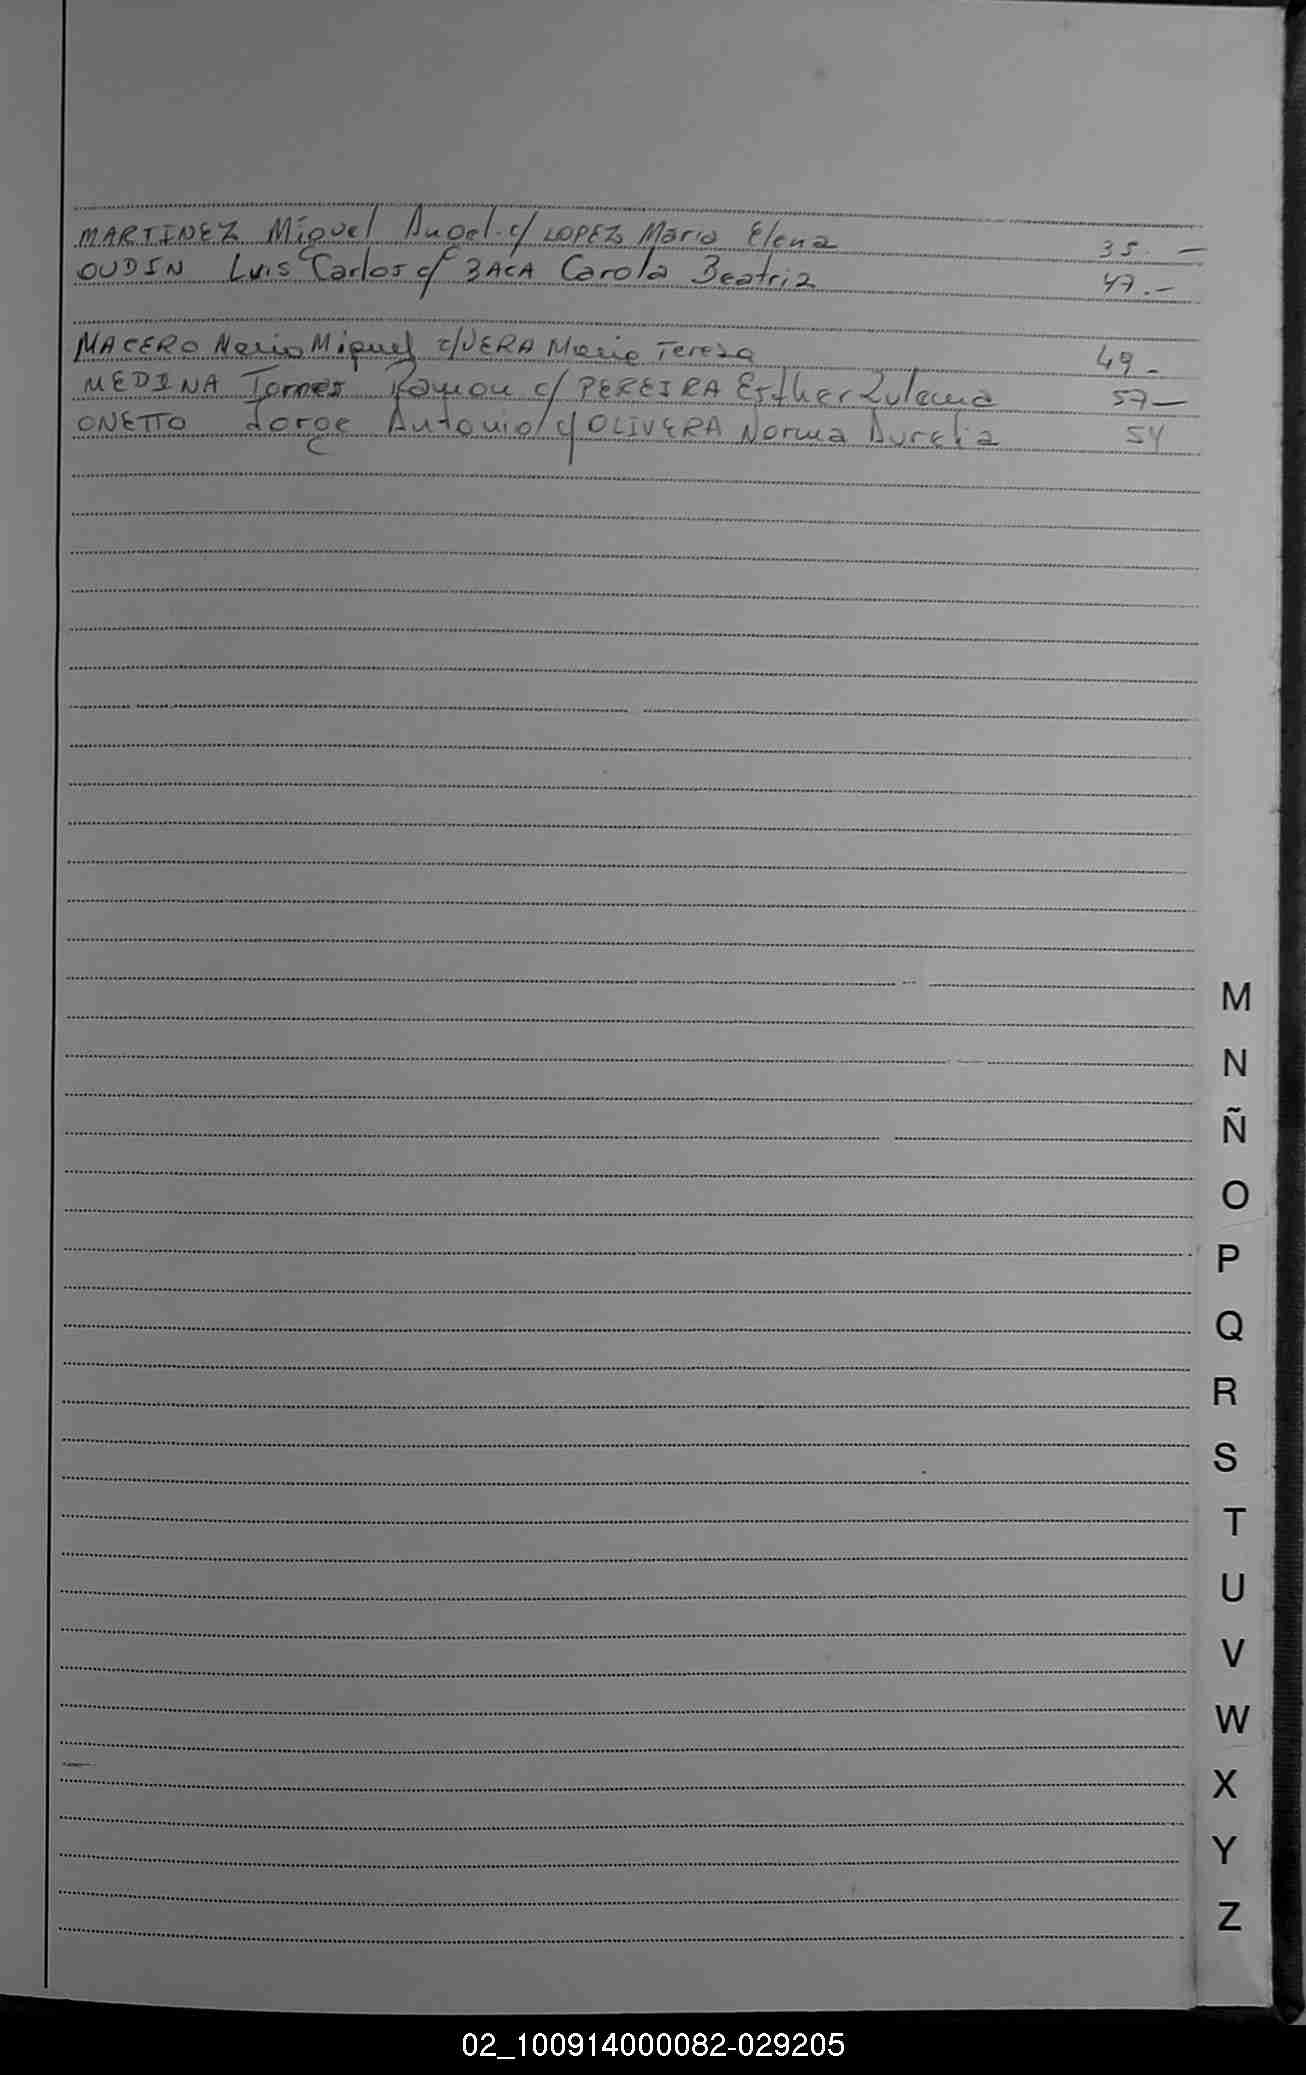 MARTINEZ Miguel Angel c/ LOPEZ Maria Elena 35. —
OUDIN Luis Carlos c/ BACA Carola Beatriz 47.—
MACERO Mario Miguel c/VERA Maria Teresa 49 -
MEDINA Torres Ramon c/ PEREIRA Esther Zulema 57—
ONETTO Jorge Antonio c/ OLIVERA Norma Aurelia 54
M
N
Ñ
O
P
Q
R
S
T
U
V
W
X
Y
Z
02_100914000082-029205